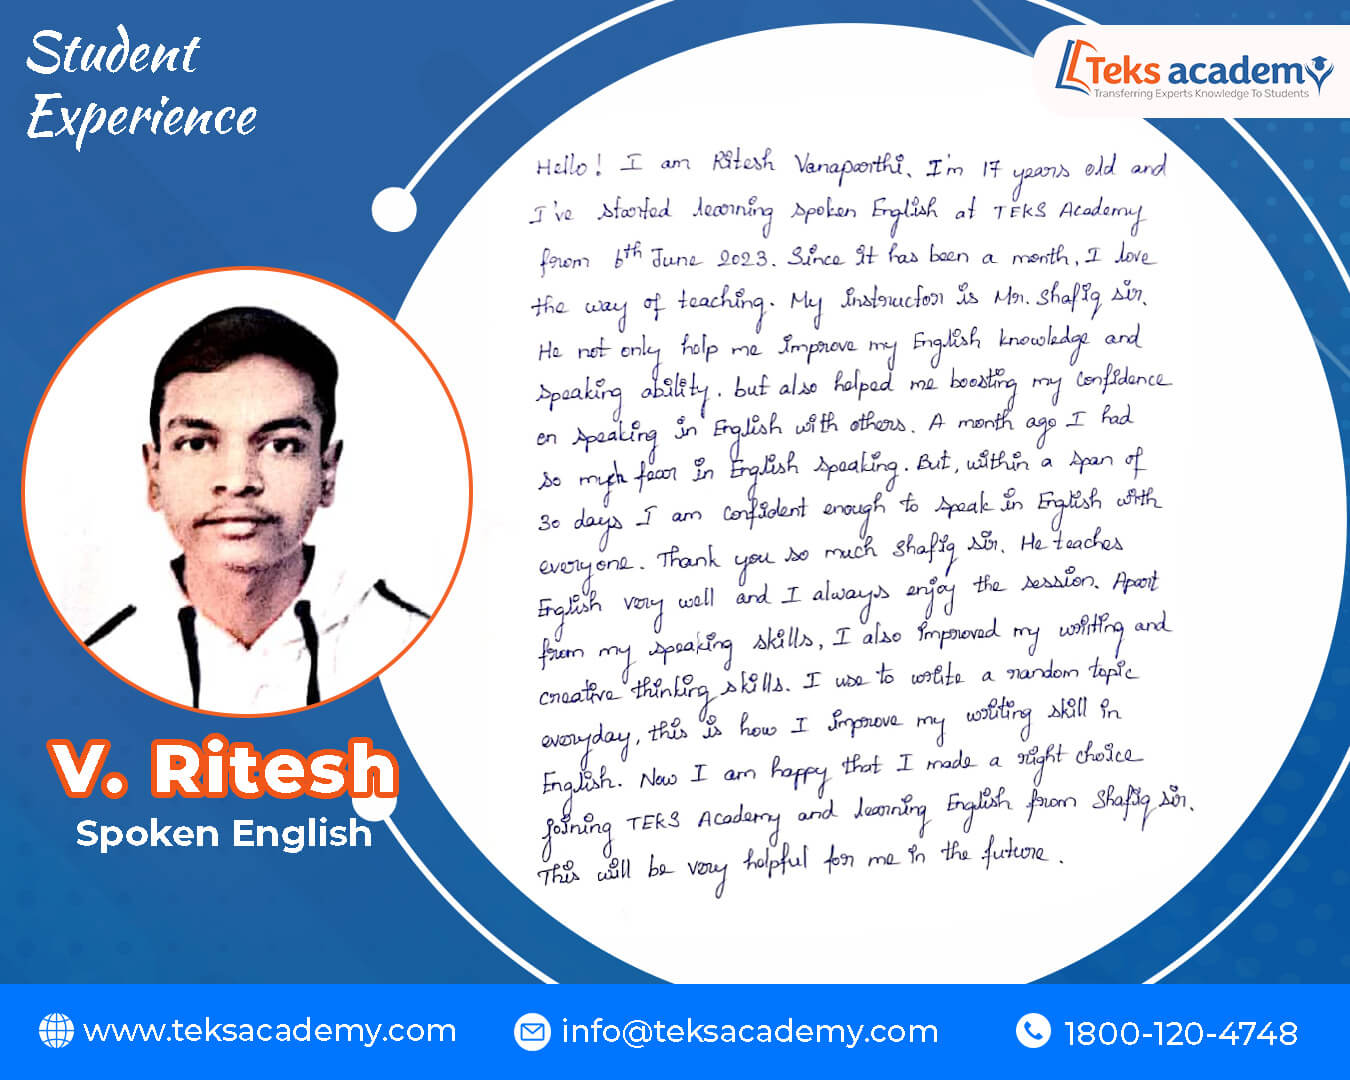 Student
Experience
Teks academy
Transferring Experts Knowledge To Students
Hello! I am Ritesh Vanaparthi, I'm 17 years old and
I've started learning spoken English at TEKS Academy
from 6th June 2023. Since it has been a month, I love
the way of teaching. My instructor is Mr. Shafiq sir.
He not only help me improve my English knowledge and
speaking ability. but also helped me boosting my confidence
on speaking in English with others. A month ago I had
so much fear in English speaking. But, within a span of
30 days I am confident enough to speak in English with
everyone. Thank you so much Shafiq sir. He teaches
English very well and I always enjoy the session. Apart
from my speaking skills, I also improved my writing and
creative thinking skills. I use to write a random topic
everyday, this is how I improve my writing skill in
English. Now I am happy that I made a right choice
joining TEKS Academy and learning English from Shafiq sir.
This will be very helpful for me in the future.
V. Ritesh
Spoken English
www.teksacademy.com
info@teksacademy.com
1800-120-4748